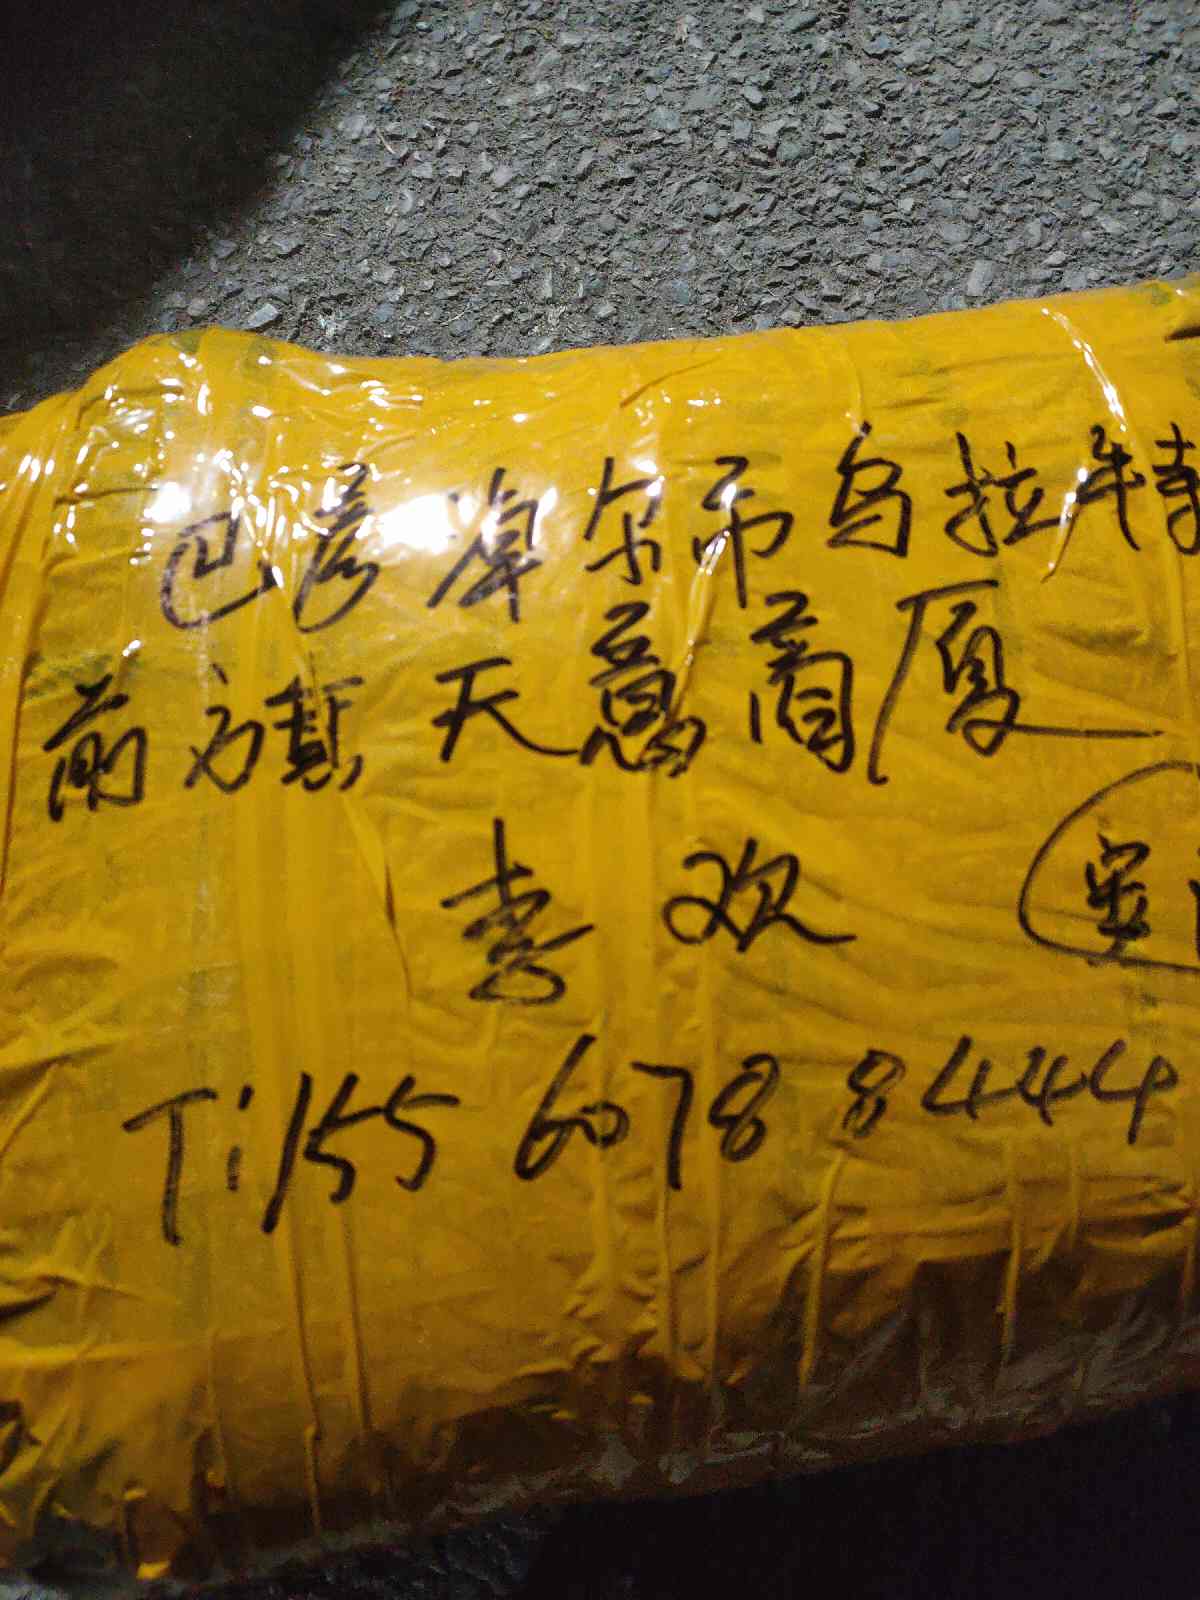 巴彦淖尔市乌拉特
前旗 天意商厦
喜欢
Ti 155 6078 8444